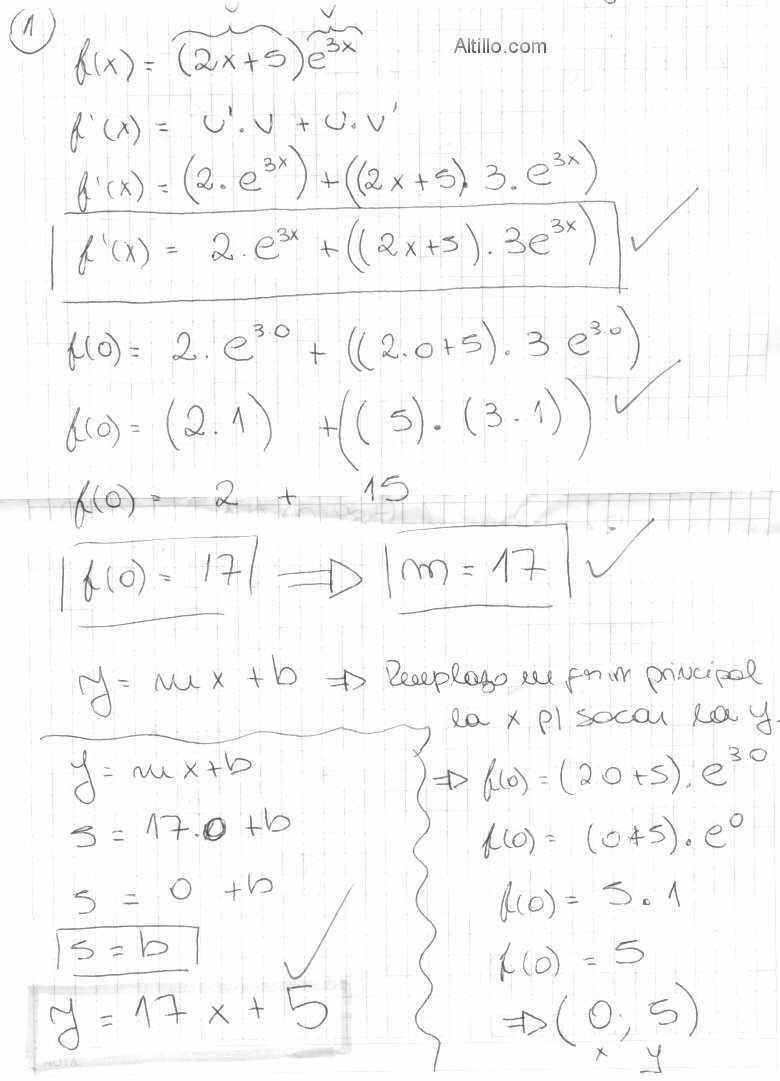 1
u v
f(x) = (2x+5)e^3x
Altillo.com
f'(x) = u'.v + u.v'
f'(x) = (2.e^3x) + ((2x+5). 3.e^3x)
f'(x) = 2.e^3x + ((2x+5).3e^3x) ✓
f(0) = 2.e^3.0 + ((2.0+5).3 e^3.0)
f(0) = (2.1) + ((5).(3.1)) ✓
f(0) = 2 + 15
f(0) = 17 ⇒ m = 17 ✓
y = mx + b ⇒ Remplazo en principal
la x p/ sacar la y.
y = mx+b
5 = 17.0 + b
5 = 0 + b
5 = b
y = 17x + 5 ✓
⇒ f(0) = (2 0+5).e^3 0
f(0) = (0+5).e^0
f(0) = 5.1
f(0) = 5
⇒ (0; 5)
x y